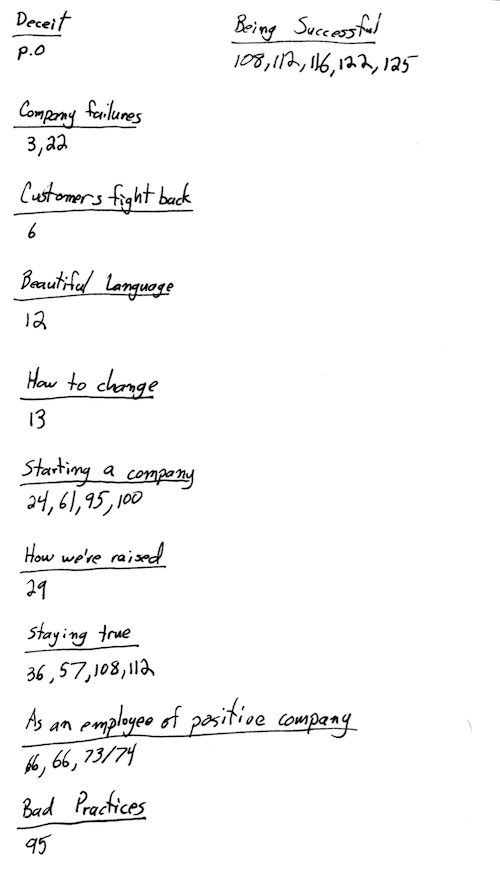 Deceit
p.0
Being Successful
108, 112, 116, 122, 125
Company failures
3, 22
Customers fight back
6
Beautiful Language
12
How to change
13
Starting a company
24, 61, 95, 100
How we're raised
29
Staying true
36, 57, 108, 112
As an employee of positive company
66, 66, 73/74
Bad Practices
95